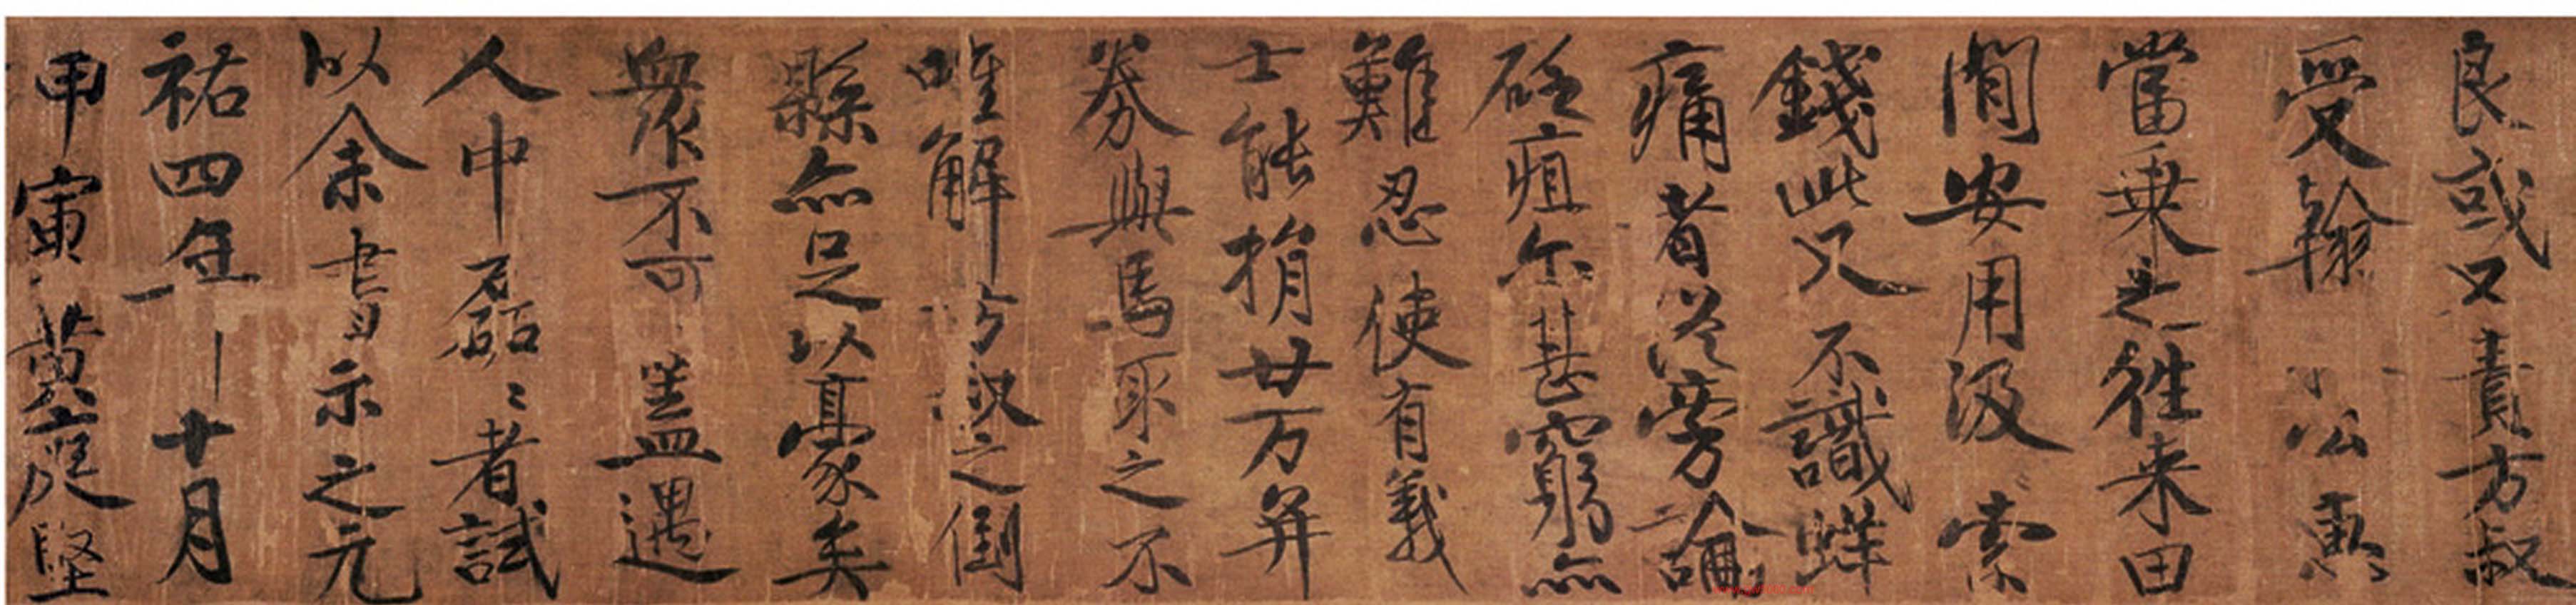 良或又責方叔
受翰公惠
當乗之往来田
間安用汲索
錢此又不識蛘
痛者從旁論
砭疽尓甚窮亦
難忍使有義
士能捐廿万并
券與馬取之不
唯解方叔之倒
縣亦足以豪矣
衆不可盖遇
人中磊〻者試
以余書示之元
祐四年十月
甲寅黄庭堅